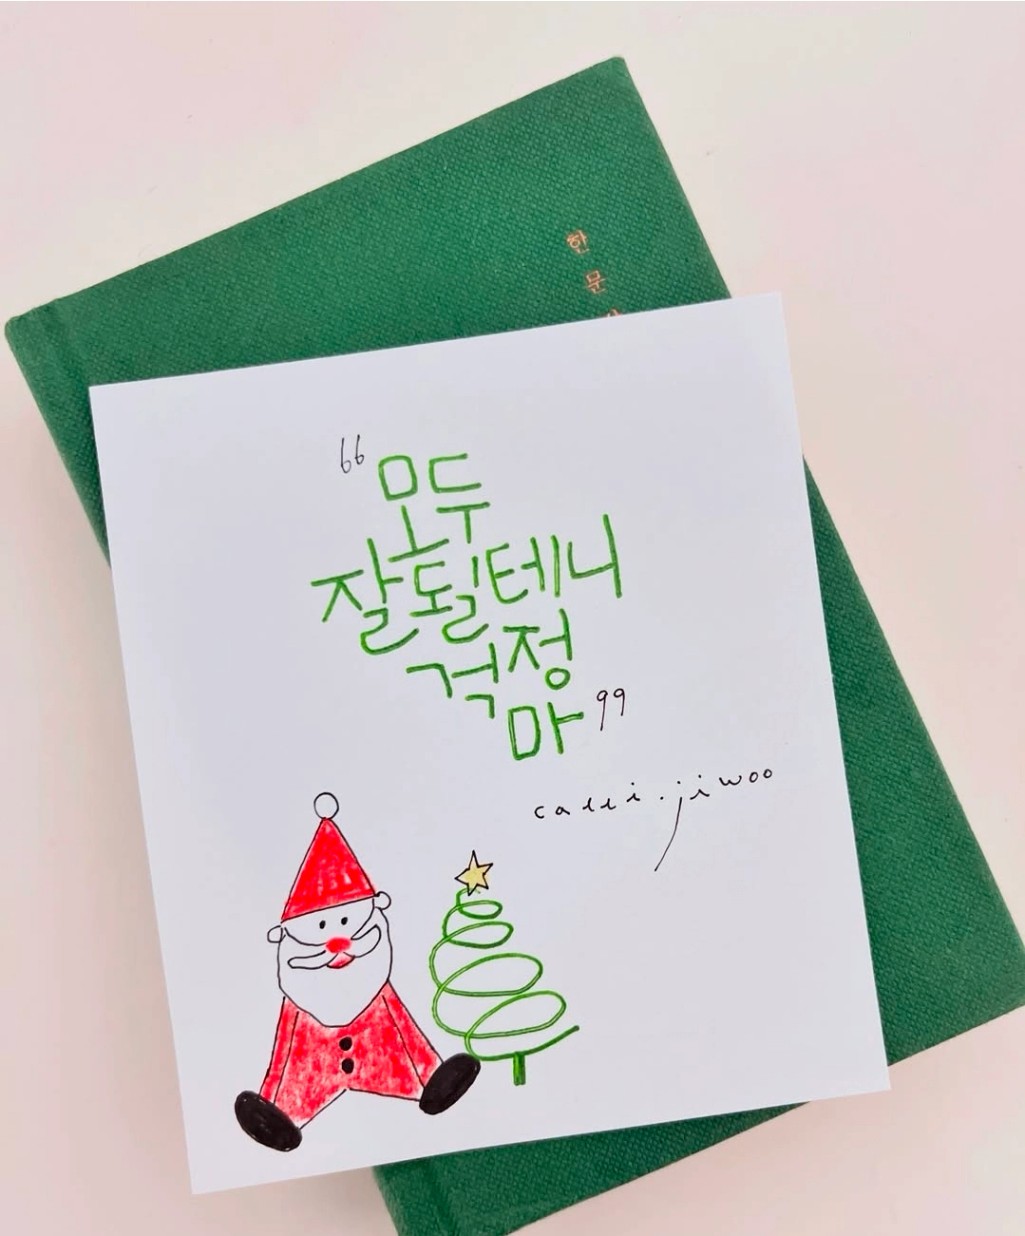 한
문
"모두
잘될테니
걱정
마"
calli.jiwoo